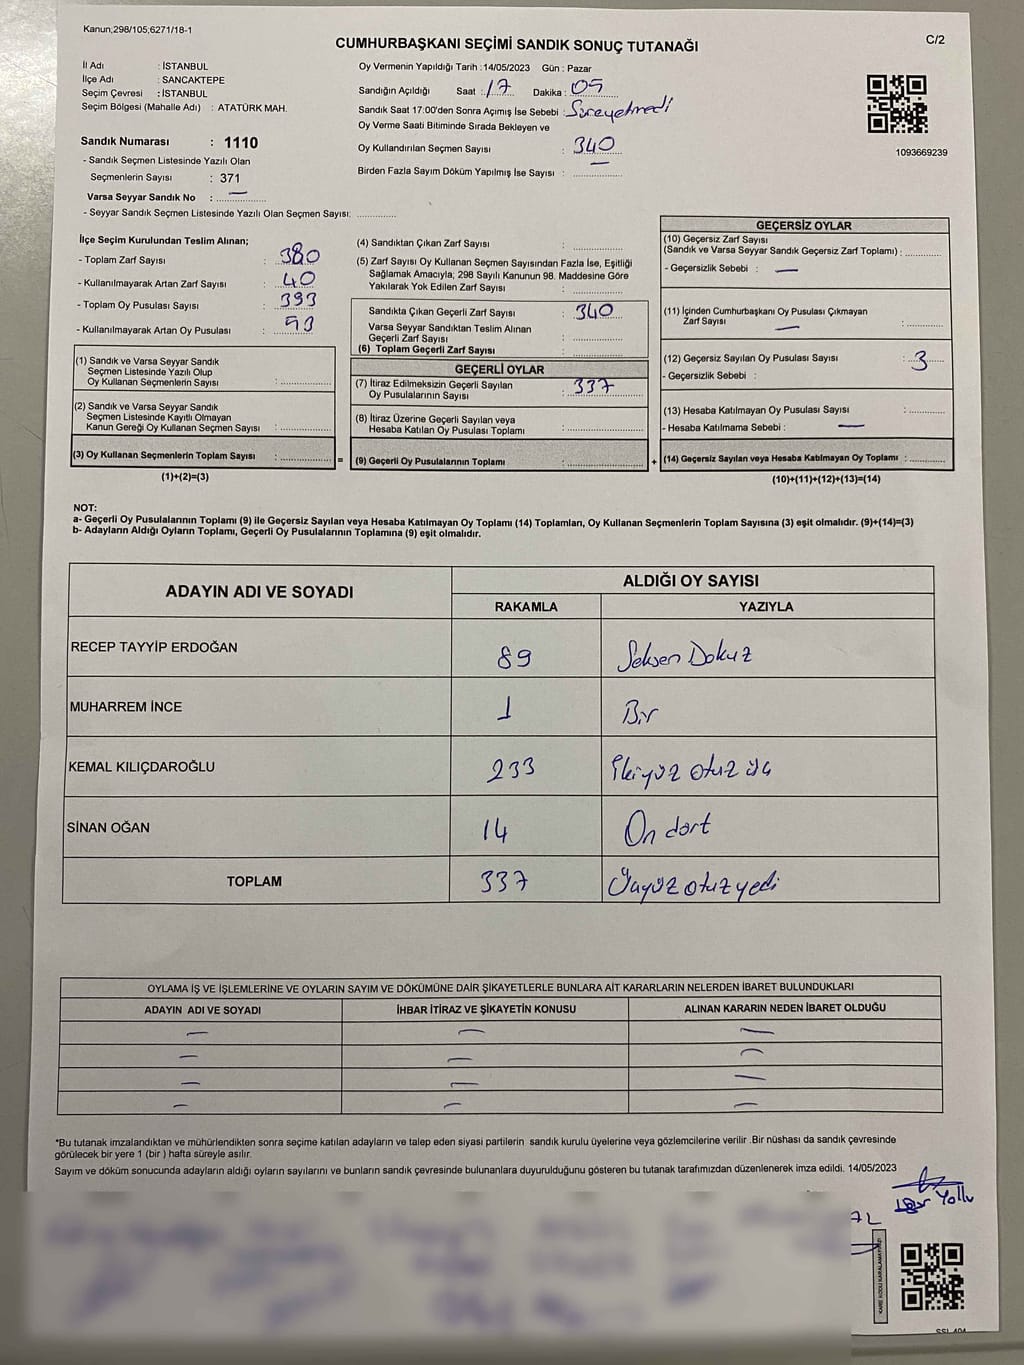 Kanun;298/105;6271/18-1
C/2
CUMHURBAŞKANI SEÇİMİ SANDIK SONUÇ TUTANAĞI
İl Adı : İSTANBUL
İlçe Adı : SANCAKTEPE
Seçim Çevresi : İSTANBUL
Seçim Bölgesi (Mahalle Adı) : ATATÜRK MAH.
Sandık Numarası : 1110
- Sandık Seçmen Listesinde Yazılı Olan
Seçmenlerin Sayısı : 371
Varsa Seyyar Sandık No : —
- Seyyar Sandık Seçmen Listesinde Yazılı Olan Seçmen Sayısı: ..............
Oy Vermenin Yapıldığı Tarih :14/05/2023 Gün : Pazar
Sandığın Açıldığı Saat : 17 Dakika : 05
Sandık Saat 17:00'den Sonra Açımış İse Sebebi :
Oy Verme Saati Bitiminde Sırada Bekleyen ve
Oy Kullandırılan Seçmen Sayısı : 340
Birden Fazla Sayım Döküm Yapılmış İse Sayısı : —
1093669239
İlçe Seçim Kurulundan Teslim Alınan;
- Toplam Zarf Sayısı : 380
- Kullanılmayarak Artan Zarf Sayısı : 40
- Toplam Oy Pusulası Sayısı : 393
- Kullanılmayarak Artan Oy Pusulası : 53
(1) Sandık ve Varsa Seyyar Sandık
Seçmen Listesinde Yazılı Olup
Oy Kullanan Seçmenlerin Sayısı : ..............
(2) Sandık ve Varsa Seyyar Sandık
Seçmen Listesinde Kayıtlı Olmayan
Kanun Gereği Oy Kullanan Seçmen Sayısı : ..............
(3) Oy Kullanan Seçmenlerin Toplam Sayısı : .............. =
(1)+(2)=(3)
(4) Sandıktan Çıkan Zarf Sayısı : ..............
(5) Zarf Sayısı Oy Kullanan Seçmen Sayısından Fazla İse, Eşitliği
Sağlamak Amacıyla; 298 Sayılı Kanunun 98. Maddesine Göre
Yakılarak Yok Edilen Zarf Sayısı : ..............
Sandıkta Çıkan Geçerli Zarf Sayısı : 340
Varsa Seyyar Sandıktan Teslim Alınan
Geçerli Zarf Sayısı : ..............
(6) Toplam Geçerli Zarf Sayısı : ..............
GEÇERLİ OYLAR
(7) İtiraz Edilmeksizin Geçerli Sayılan
Oy Pusulalarının Sayısı : 337
(8) İtiraz Üzerine Geçerli Sayılan veya
Hesaba Katılan Oy Pusulası Toplamı : ..............
(9) Geçerli Oy Pusulalarının Toplamı : .............. +
GEÇERSİZ OYLAR
(10) Geçersiz Zarf Sayısı
(Sandık ve Varsa Seyyar Sandık Geçersiz Zarf Toplamı) : ..........
- Geçersizlik Sebebi : —
(11) İçinden Cumhurbaşkanı Oy Pusulası Çıkmayan
Zarf Sayısı — : ..........
(12) Geçersiz Sayılan Oy Pusulası Sayısı : 3
- Geçersizlik Sebebi :
(13) Hesaba Katılmayan Oy Pusulası Sayısı : ..........
- Hesaba Katılmama Sebebi : —
(14) Geçersiz Sayılan veya Hesaba Katılmayan Oy Toplamı : ..........
(10)+(11)+(12)+(13)=(14)
NOT:
a- Geçerli Oy Pusulalarının Toplamı (9) ile Geçersiz Sayılan veya Hesaba Katılmayan Oy Toplamı (14) Toplamları, Oy Kullanan Seçmenlerin Toplam Sayısına (3) eşit olmalıdır. (9)+(14)=(3)
b- Adayların Aldığı Oyların Toplamı, Geçerli Oy Pusulalarının Toplamına (9) eşit olmalıdır.
ADAYIN ADI VE SOYADI ALDIĞI OY SAYISI
RAKAMLA YAZIYLA
RECEP TAYYİP ERDOĞAN 89 Seksen Dokuz
MUHARREM İNCE 1 Bir
KEMAL KILIÇDAROĞLU 233 İkiyüz otuz üç
SİNAN OĞAN 14 On dört
TOPLAM 337 Üçyüz otuz yedi
OYLAMA İŞ VE İŞLEMLERİNE VE OYLARIN SAYIM VE DÖKÜMÜNE DAİR ŞİKAYETLERLE BUNLARA AİT KARARLARIN NELERDEN İBARET BULUNDUKLARI
ADAYIN ADI VE SOYADI İHBAR İTİRAZ VE ŞİKAYETİN KONUSU ALINAN KARARIN NEDEN İBARET OLDUĞU
— — —
— — —
— — —
— — —
*Bu tutanak imzalandıktan ve mühürlendikten sonra seçime katılan adayların ve talep eden siyasi partilerin sandık kurulu üyelerine veya gözlemcilerine verilir .Bir nüshası da sandık çevresinde
görülecek bir yere 1 (bir ) hafta süreyle asılır.
Sayım ve döküm sonucunda adayların aldığı oyların sayılarını ve bunların sandık çevresinde bulunanlara duyurulduğunu gösteren bu tutanak tarafımızdan düzenlenerek imza edildi. 14/05/2023
Yollu
KARE KODU KARALAMAYINIZ!